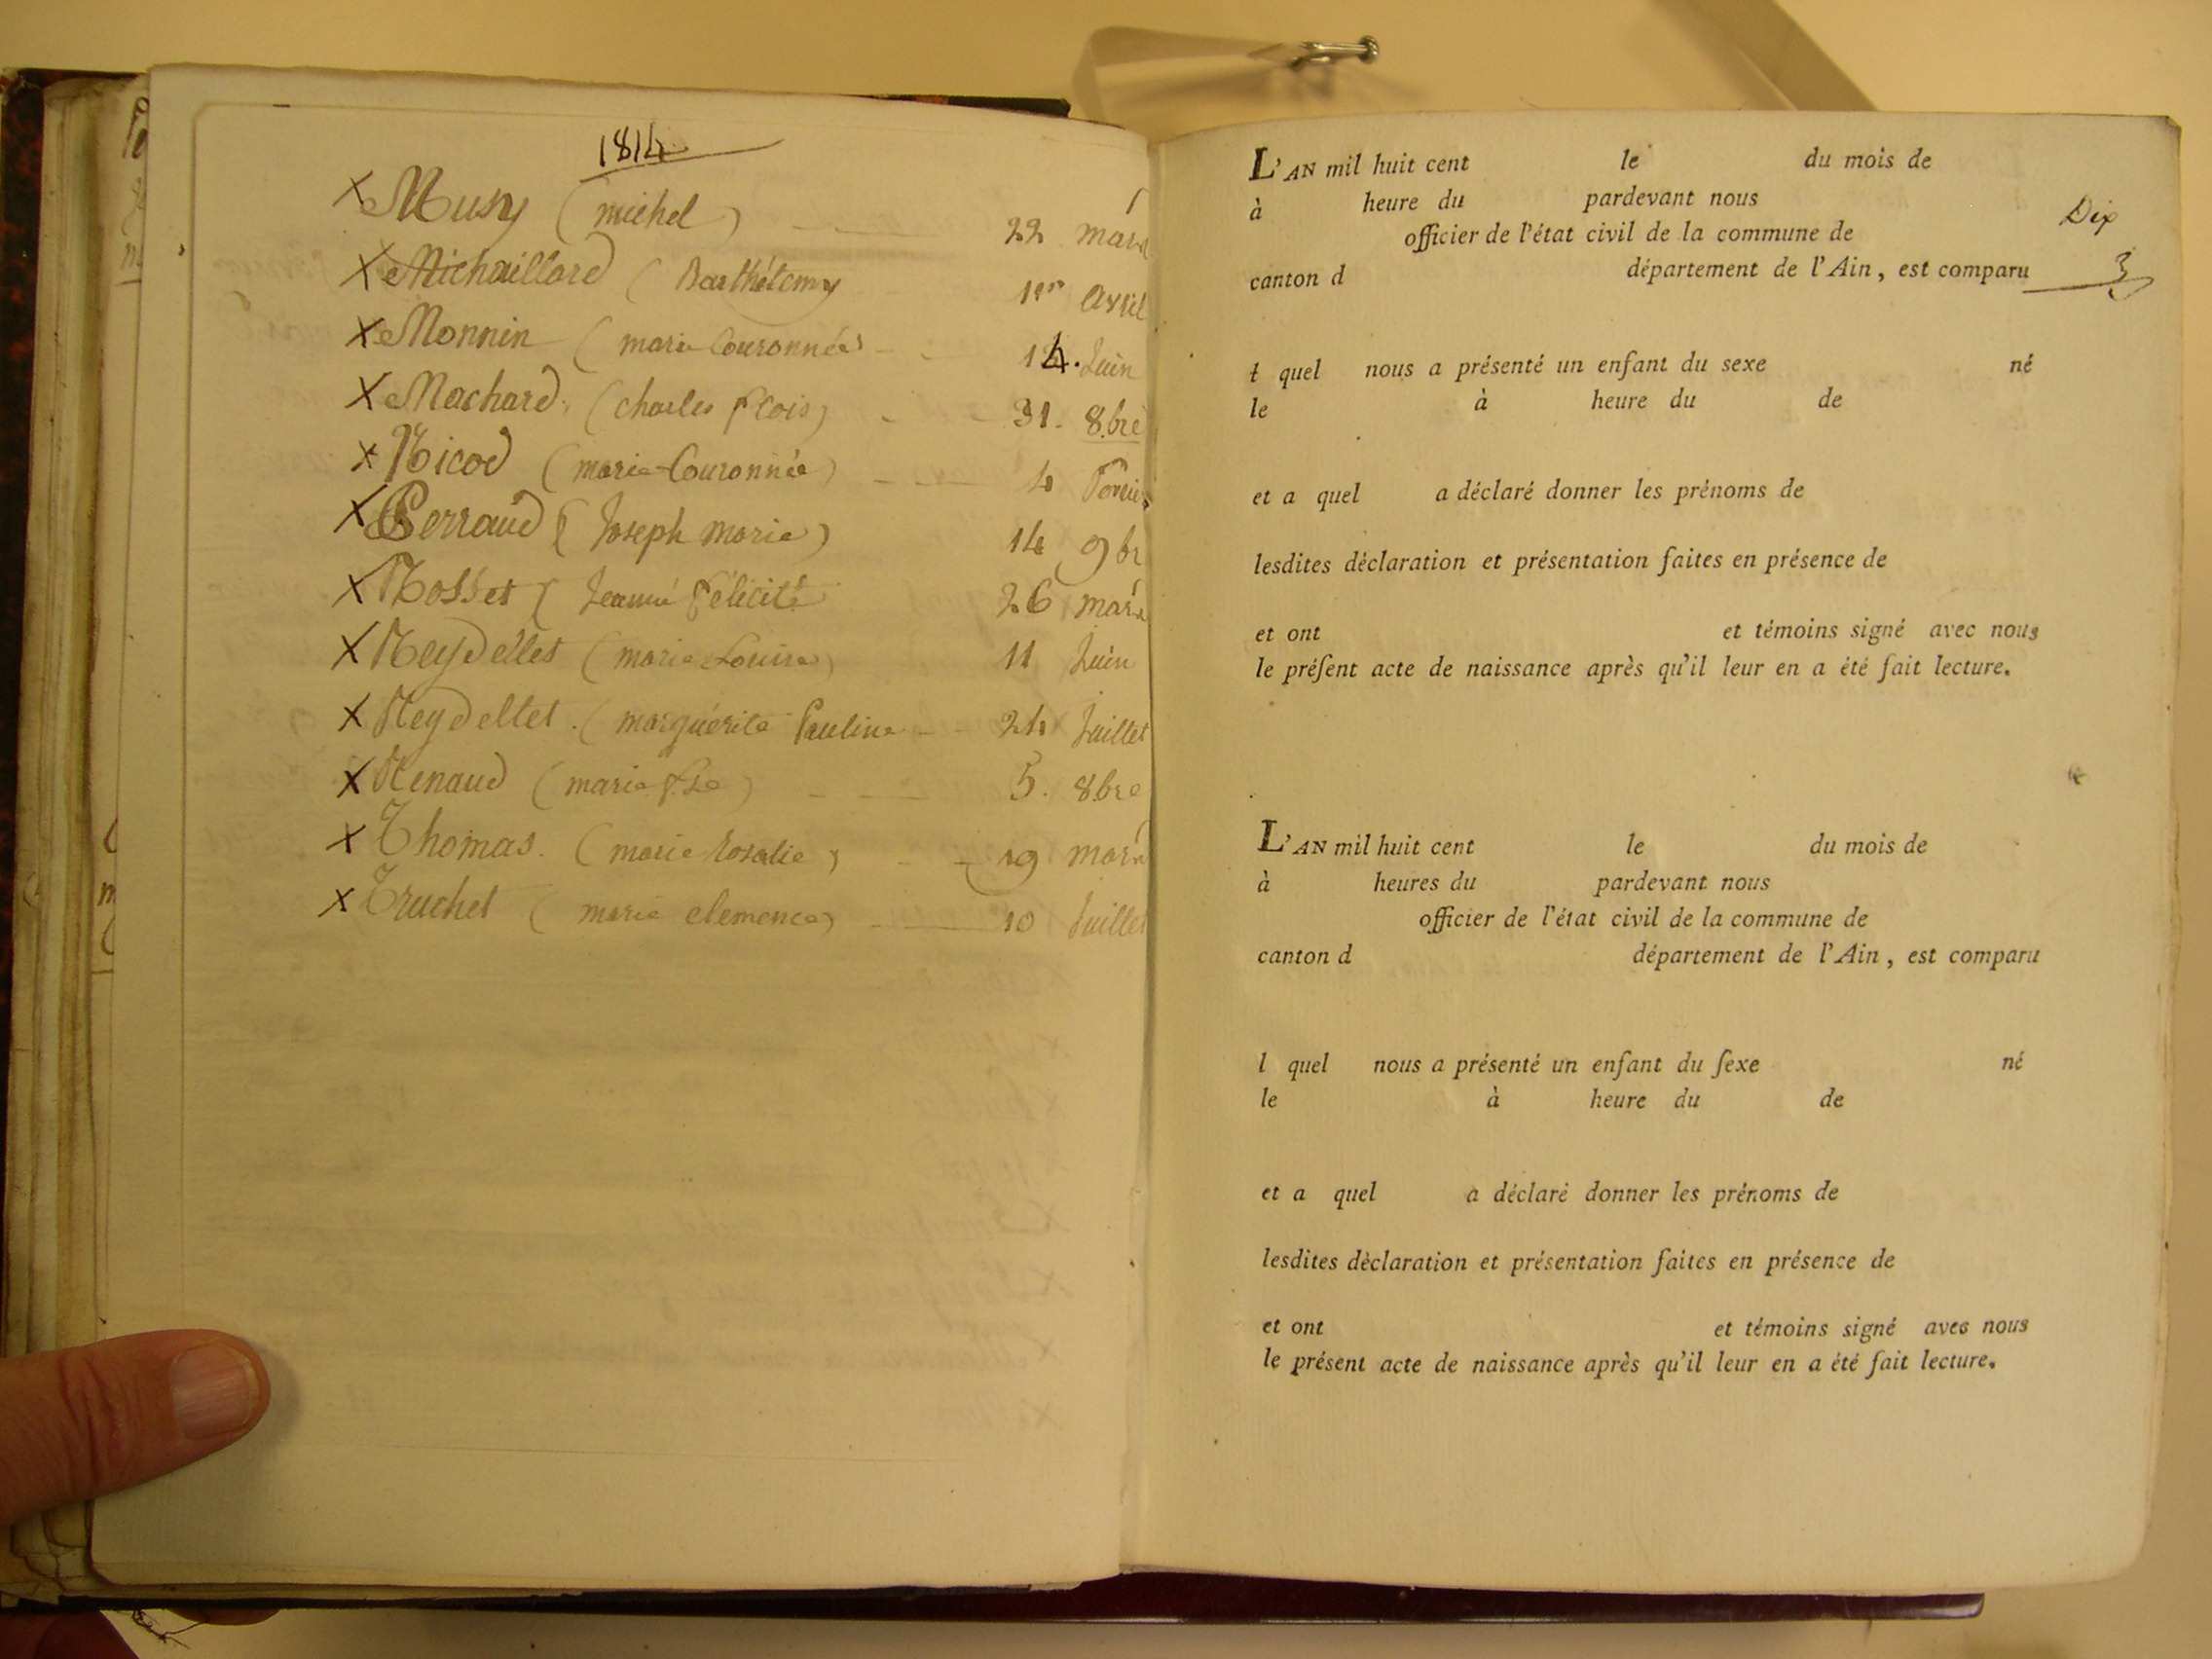 1814
x Musy (michel) 22 mars
x Michaillard (Barthélemy 1er avril
x Monnin (marie Couronnée) 14. Juin
x Machard. (charles fcois) 31. 8.bre
x Nicod (marie-Couronnée) 4
x Perraud (Joseph marie) 14 9 br
x Rosset (Jeanne félicité 26 mars
x Reydellet (marie Louise) 11 Juin
x Reydellet. (marguérite Pauline 24 Juillet
x Renaud (marie f.se) 5. 8.bre
x Thomas. (marie rosalie) 19 mars
x Truchet (marie clemence) 10 Juillet
L'AN mil huit cent le du mois de
à heure du pardevant nous
Dix
officier de l'état civil de la commune de
canton d département de l'Ain, est comparu
3
l quel nous a présenté un enfant du sexe né
le à heure du de
et a quel a déclaré donner les prénoms de
lesdites déclaration et présentation faites en présence de
et ont et témoins signé avec nous
le préſent acte de naissance après qu'il leur en a été fait lecture.
L'AN mil huit cent le du mois de
à heures du pardevant nous
officier de l'état civil de la commune de
canton d département de l'Ain, est comparu
l quel nous a présenté un enfant du ſexe né
le à heure du de
et a quel a déclaré donner les prénoms de
lesdites déclaration et présentation faites en présence de
et ont et témoins signé avec nous
le présent acte de naissance après qu'il leur en a été fait lecture.